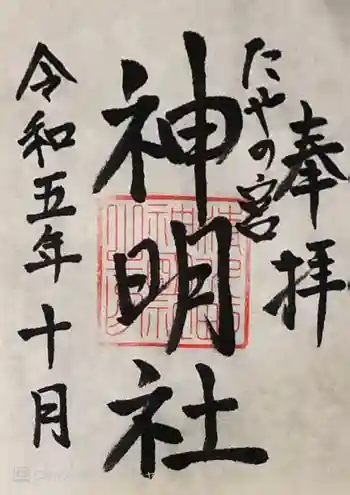 奉拝
たやの宮
神明社
令和五年十月